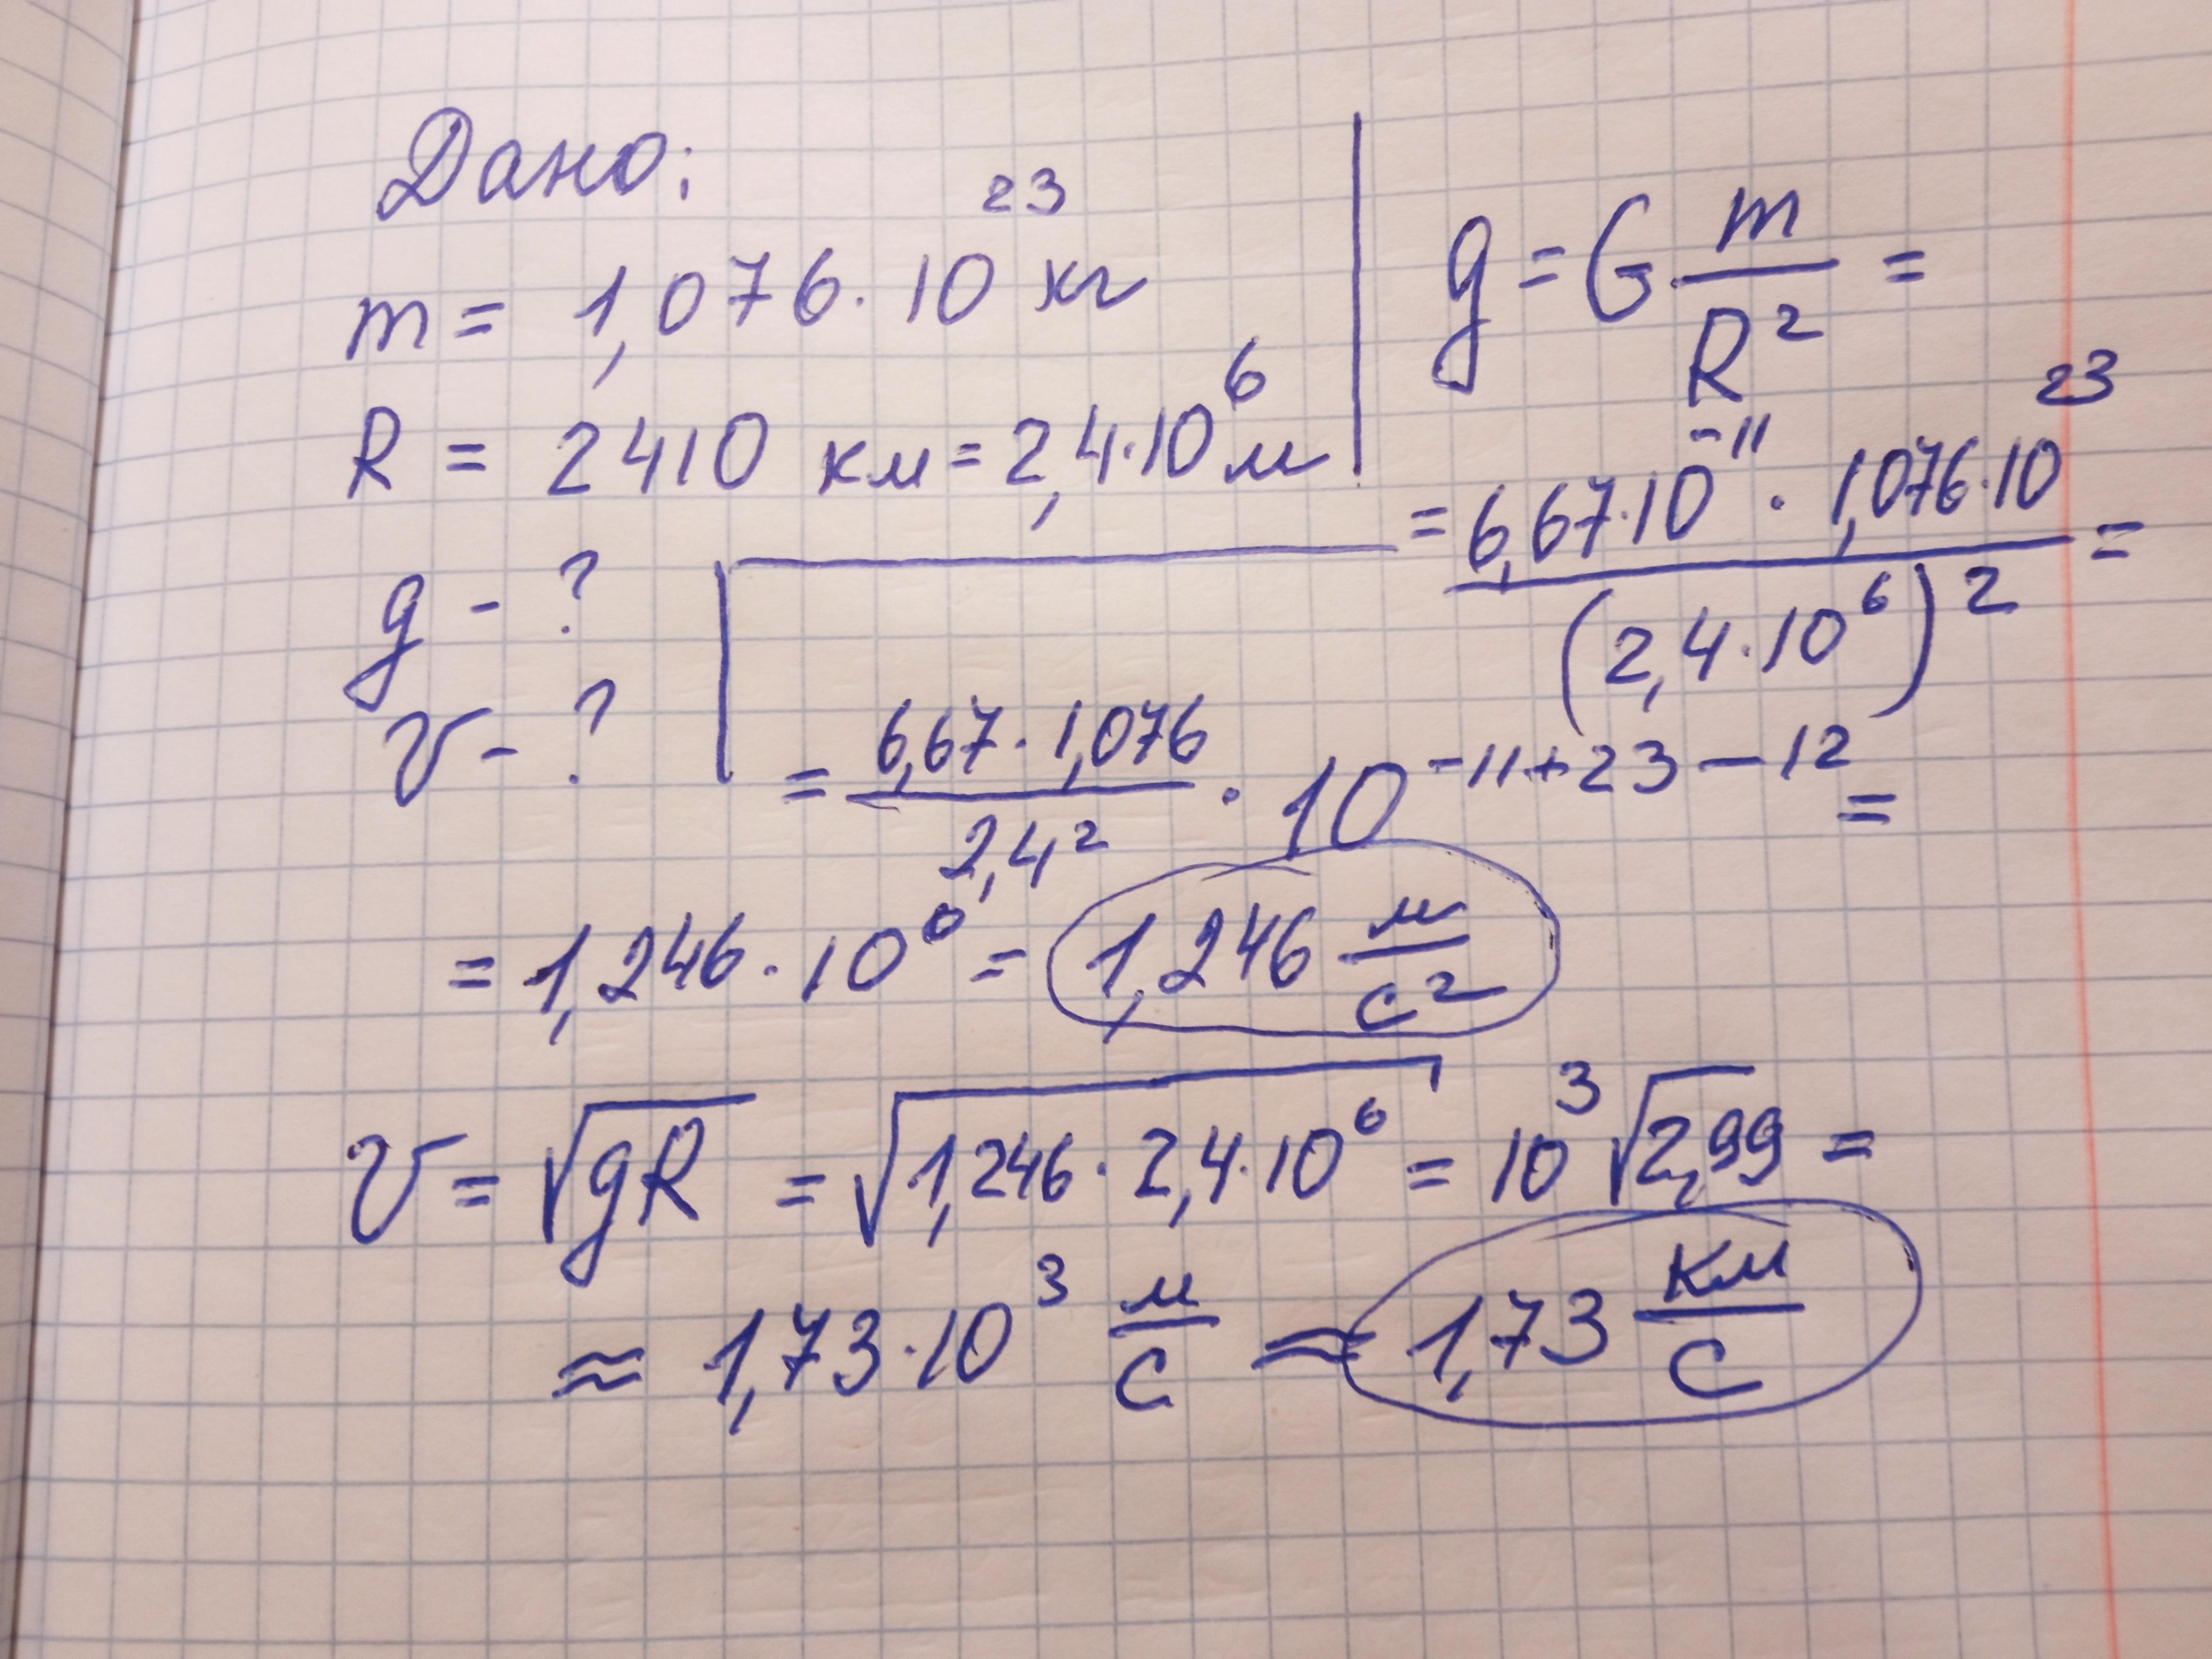 Дано:
m = 1,076 · 10²³ кг
R = 2410 км = 2,4 · 10⁶ м
g - ?
v - ?
g = G m/R² =
= 6,67 · 10⁻¹¹ · 1,076 · 10²³ / (2,4 · 10⁶)² =
= 6,67 · 1,076 / 2,4² · 10⁻¹¹⁺²³⁻¹² =
= 1,246 · 10⁰ = 1,246 м/с²
v = √gR = √1,246 · 2,4 · 10⁶ = 10³ √2,99 =
≈ 1,73 · 10³ м/с ≈ 1,73 км/с